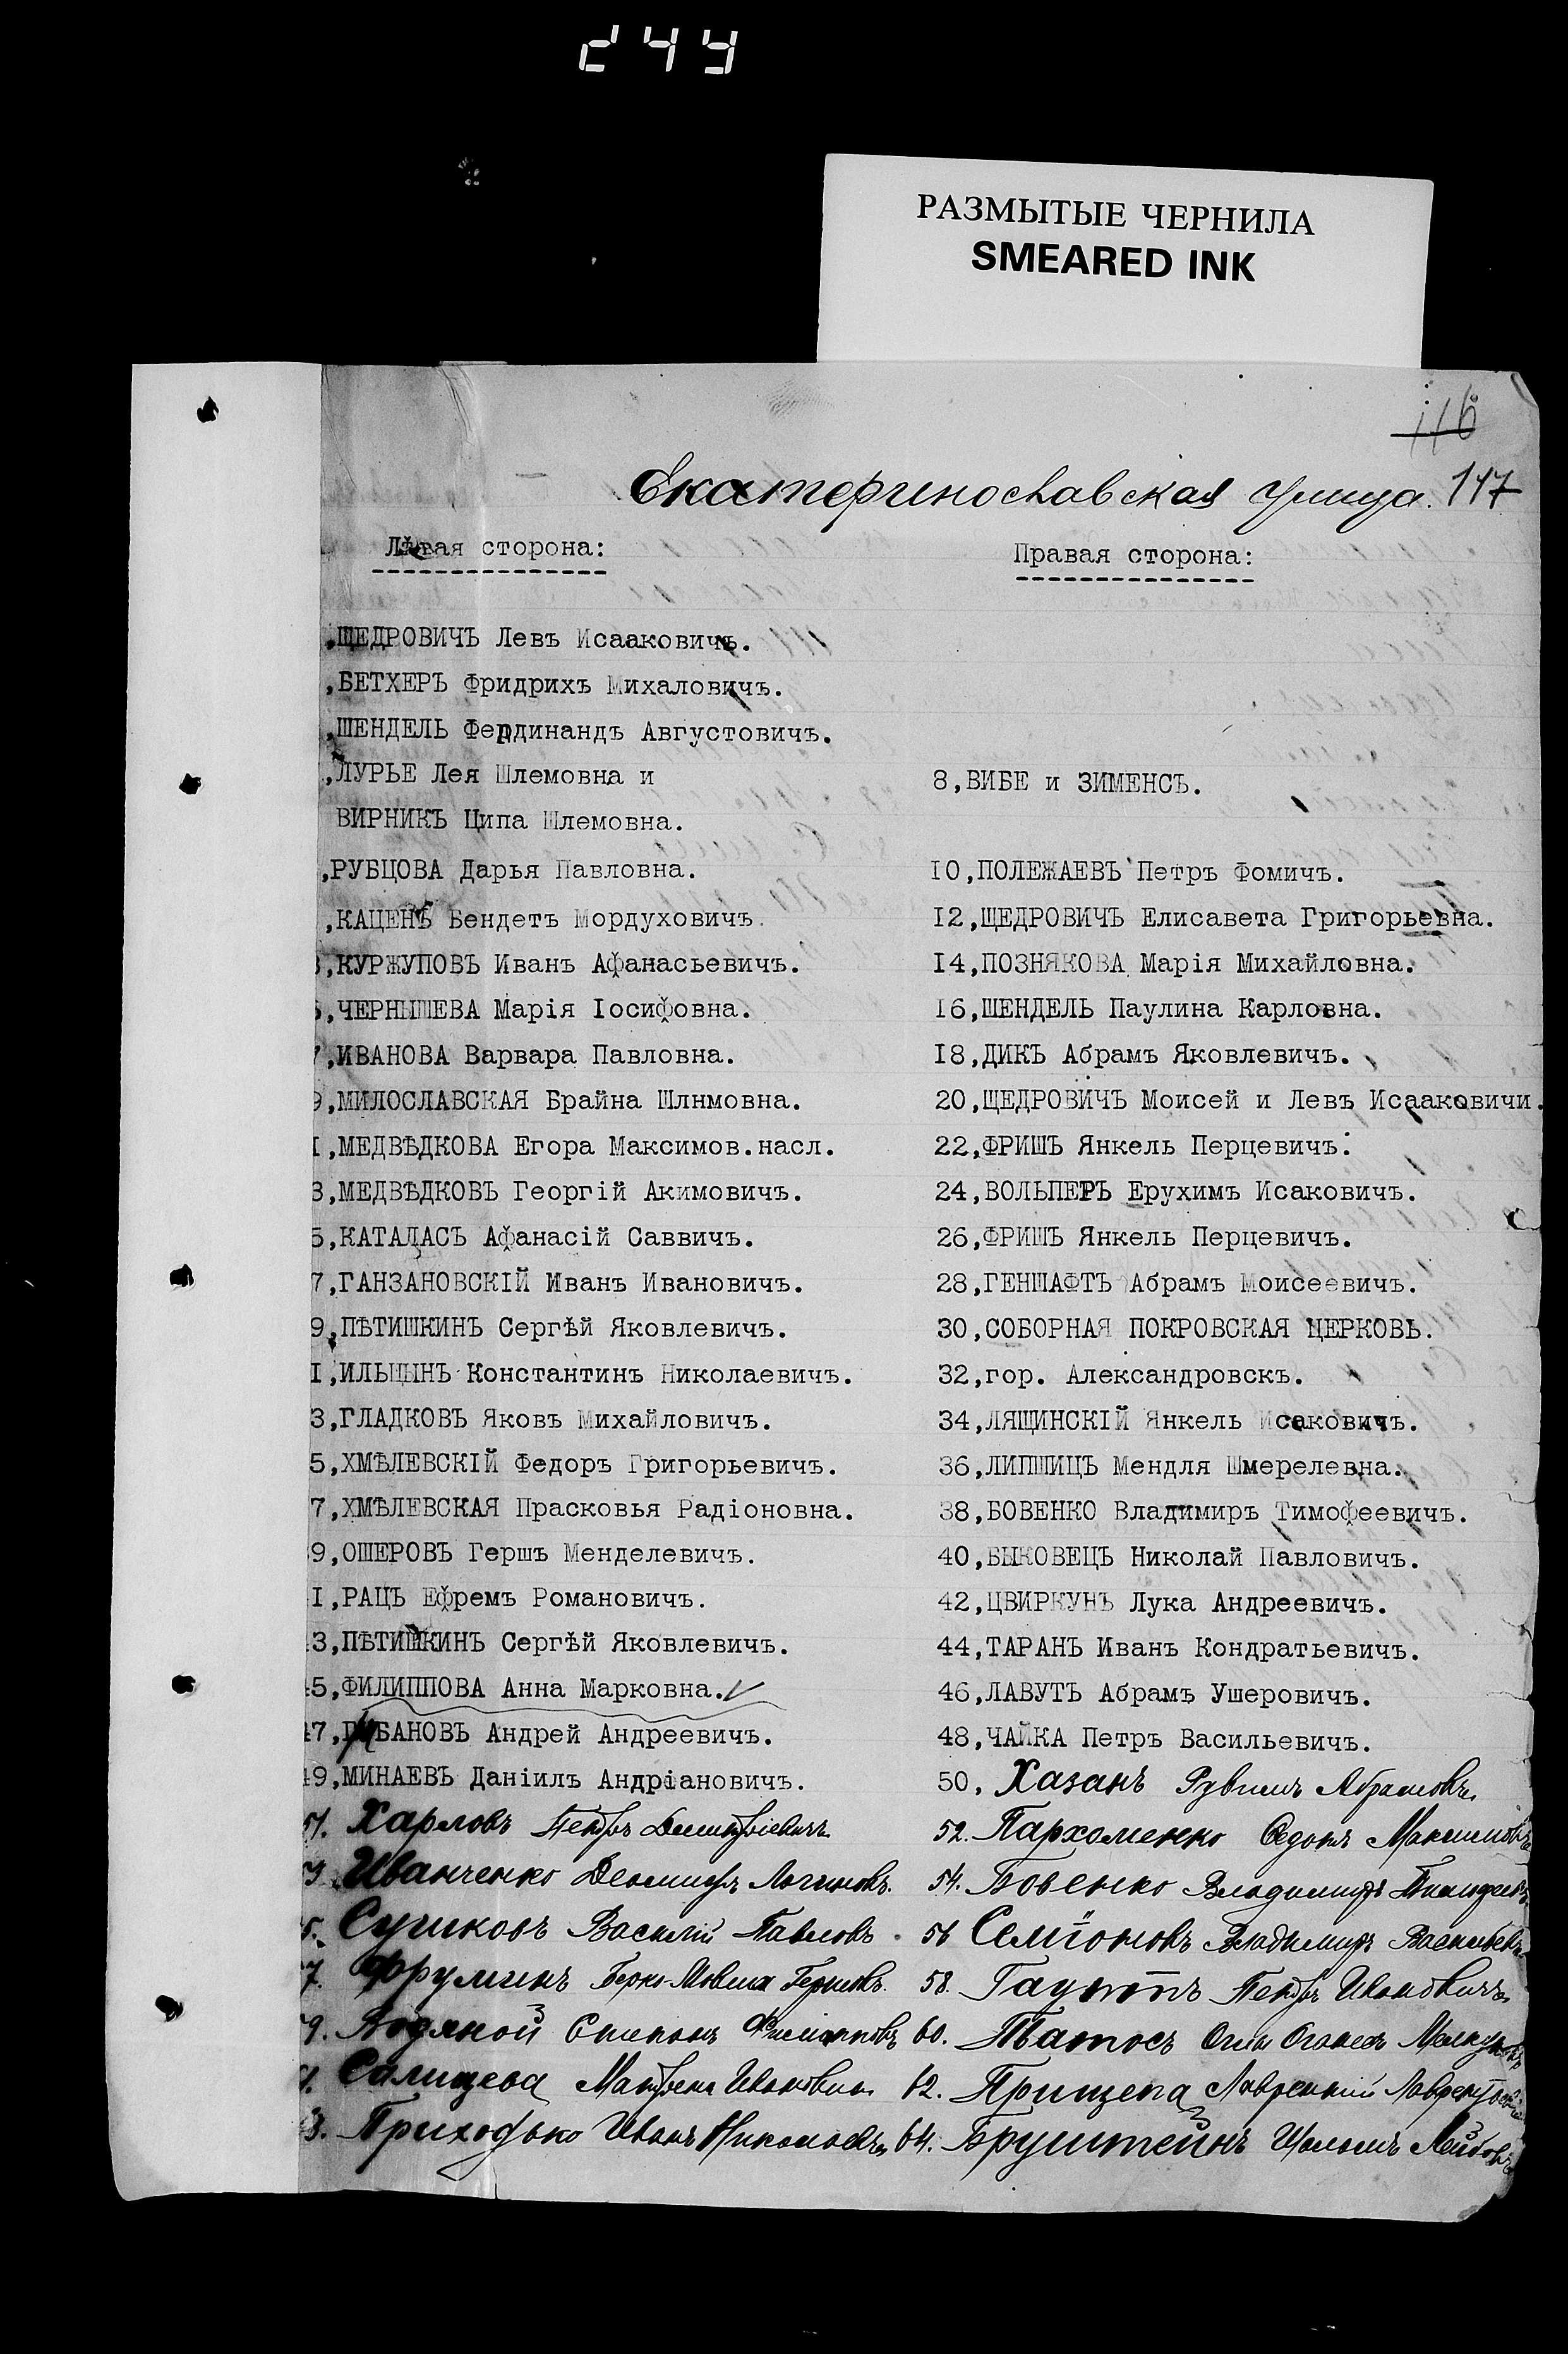 244
РАЗМЫТЫЕ ЧЕРНИЛА
SMEARED INK
116
Екатеринославская улица. 117
Лѣвая сторона:
,ЩЕДРОВИЧЪ Левъ Исааковичъ.
,БЕТХЕРЪ Фридрихъ Михаловичъ.
,ШЕНДЕЛЬ Фердинандъ Августовичъ.
,ЛУРЬЕ Лея Шлемовна и
ВИРНИКЪ Ципа Шлемовна.
,РУБЦОВА Дарья Павловна.
,КАЦЕНЪ Бендетъ Мордуховичъ.
3,КУРЖУПОВЪ Иванъ Афанасьевичъ.
5,ЧЕРНЫШЕВА Марія Іосифовна.
7,ИВАНОВА Варвара Павловна.
9,МИЛОСЛАВСКАЯ Брайна Шлнмовна.
I,МЕДВѢДКОВА Егора Максимов.насл.
3,МЕДВѢДКОВЪ Георгій Акимовичъ.
5,КАТАЛАСЪ Афанасій Саввичъ.
7,ГАНЗАНОВСКІЙ Иванъ Ивановичъ.
9,ПѢТИШКИНЪ Сергѣй Яковлевичъ.
I,ИЛЬЦЫНЪ Константинъ Николаевичъ.
3,ГЛАДКОВЪ Яковъ Михайловичъ.
5,ХМѢЛЕВСКІЙ Федоръ Григорьевичъ.
7,ХМѢЛЕВСКАЯ Прасковья Радіоновна.
39,ОШЕРОВЪ Гершъ Менделевичъ.
4I,РАЦЪ Ефремъ Романовичъ.
43,ПѢТИШКИНЪ Сергѣй Яковлевичъ.
45,ФИЛИППОВА Анна Марковна.
47,ГУБАНОВЪ Андрей Андреевичъ.
49,МИНАЕВЪ Даніилъ Андріановичъ.
51. Харловъ Петръ Дмитріевичъ
53. Иванченко Логиновъ.
55. Сушковъ Василій Павловъ.
57. Фруминъ Берко-Мовша
59. Водяной Степанъ Филипповъ
61. Салищева Матрена Ивановна
63. Приходько Иванъ Николаевъ
Правая сторона:
8,ВИБЕ и ЗИМЕНСЪ.
I0,ПОЛЕЖАЕВЪ Петръ Фомичъ.
I2,ЩЕДРОВИЧЪ Елисавета Григорьевна.
I4,ПОЗНЯКОВА Марія Михайловна.
I6,ШЕНДЕЛЬ Паулина Карловна.
I8,ДИКЪ Абрамъ Яковлевичъ.
20,ЩЕДРОВИЧЪ Моисей и Левъ Исааковичи.
22,ФРИШЪ Янкель Перцевичъ.
24,ВОЛЬПЕРЪ Ерухимъ Исаковичъ.
26,ФРИШЪ Янкель Перцевичъ.
28,ГЕНШАФТЪ Абрамъ Моисеевичъ.
30,СОБОРНАЯ ПОКРОВСКАЯ ЦЕРКОВЬ.
32,гор. Александровскъ.
34,ЛЯЩИНСКІЙ Янкель Исаковичъ.
36,ЛИПШИЦЪ Мендля Шмерелевна.
38,БОВЕНКО Владимиръ Тимофеевичъ.
40,БЫКОВЕЦЪ Николай Павловичъ.
42,ЦВИРКУНЪ Лука Андреевичъ.
44,ТАРАНЪ Иванъ Кондратьевичъ.
46,ЛАВУТЪ Абрамъ Ушеровичъ.
48,ЧАЙКА Петръ Васильевичъ.
50, Хазанъ Рувимъ Абрамовъ.
52. Пархоменко Максимовъ
54. Бовенко Владимиръ
56 Семіоновъ Владимиръ Васильевъ
58. Гауптъ Петръ Ивановичъ
60. Татосъ Оглы Оганесъ
62. Прищепа Лаврентій
64. Бруштейнъ Шолымъ Лейбовъ